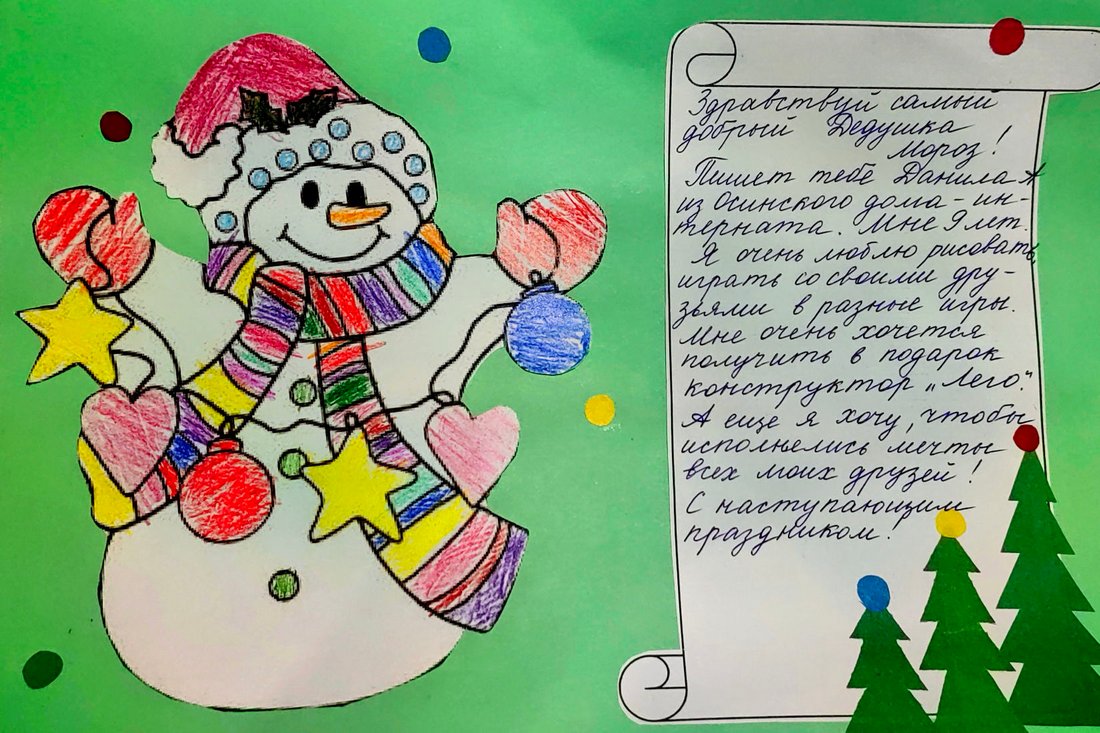 Здравствуй самый
добрый Дедушка
Мороз!
Пишет тебе Данила А
из Осинского дома-ин-
терната. Мне 9 лет.
Я очень люблю рисовать,
играть со своими дру-
зьями в разные игры.
Мне очень хочется
получить в подарок
конструктор „Лего".
А еще я хочу, чтобы
исполнялись мечты
всех моих друзей!
С наступающим
праздником!